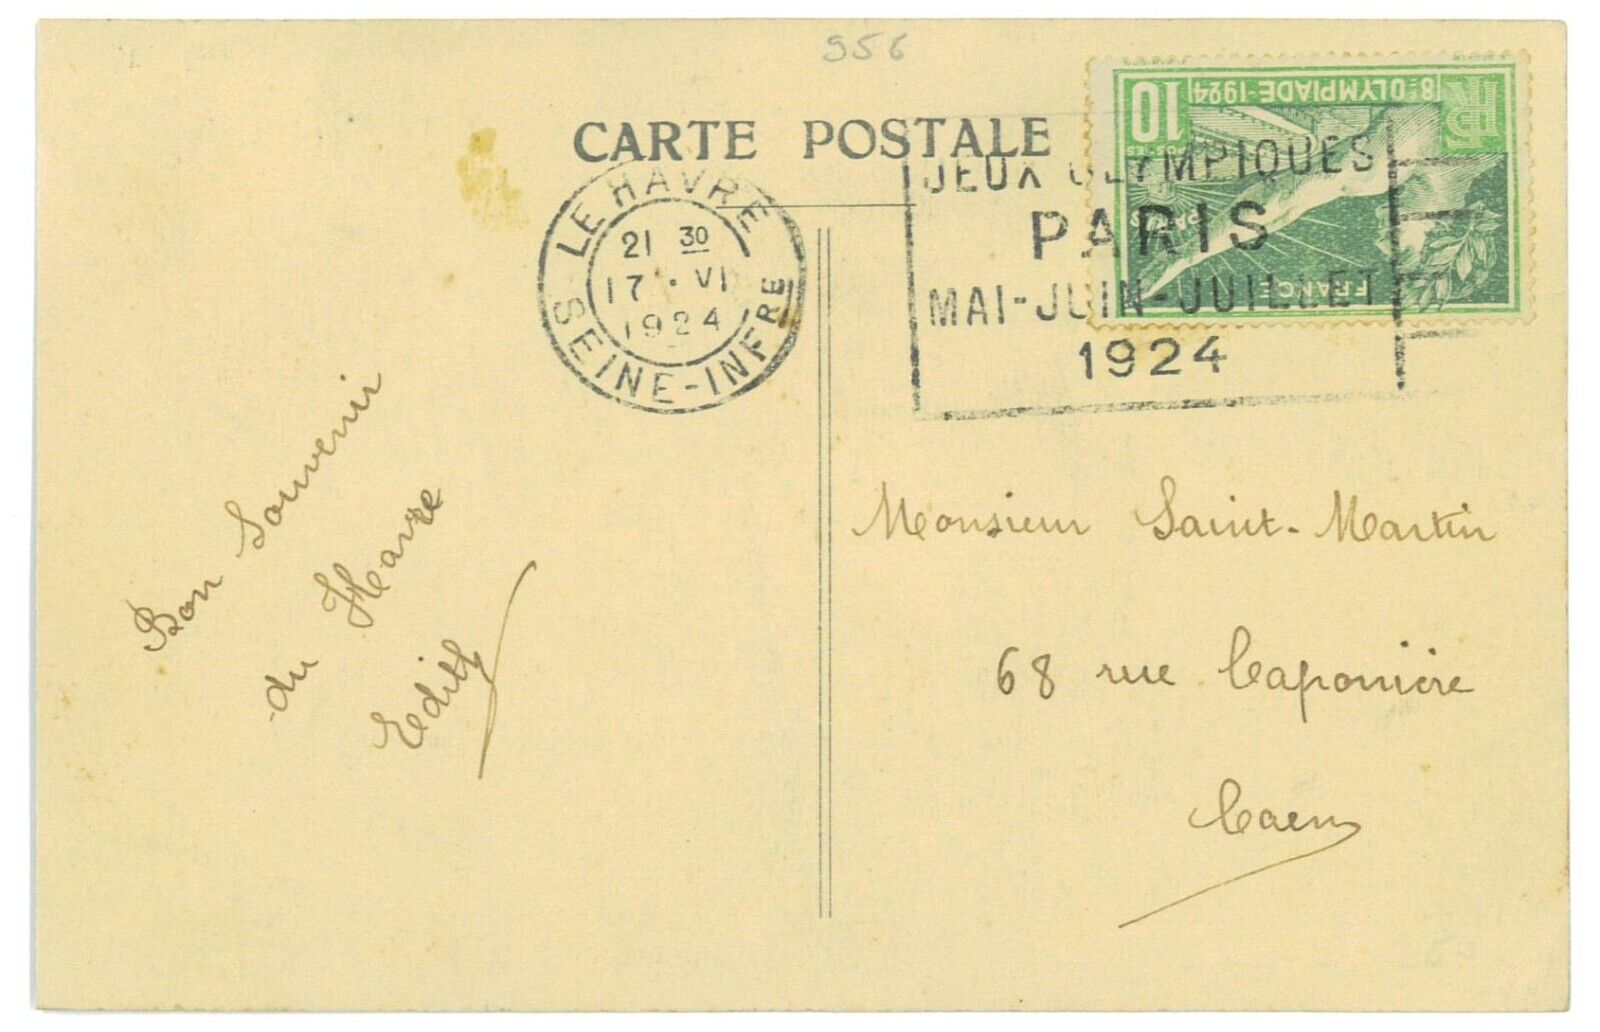 956
CARTE POSTALE
LE HAVRE
21 30
17 · VI
1924
SEINE-INFRE
JEUX OLYMPIQUES
PARIS
MAI-JUIN-JUILLET
1924
10
8E OLYMPIADE-1924
RF
POSTES
PARIS
FRANCE
Bon Souvenir
du Havre
Edith
Monsieur Saint-Martin
68 rue Caponière
Caen